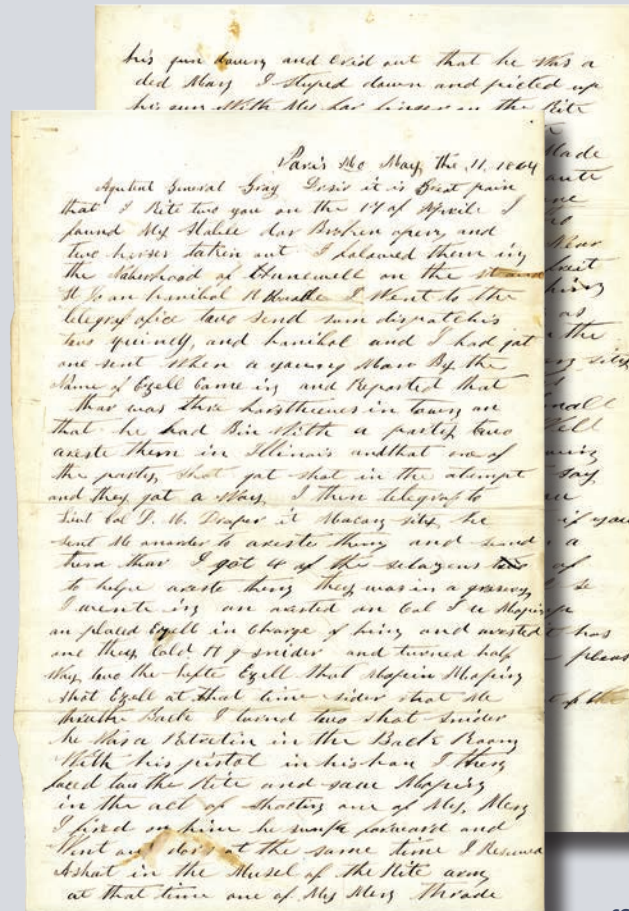 his gun down and crid out that he was a
ded Man I stuped down and picted up
his gun With My finger on the Rite
Paris Mo May the 11, 1864
Agutent General Gray Desir it is Great pain
that I Rite two you on the 17 of Aprile I
found My Stable dor Broken open and
two horses taken out I folowed them in
the Naberhood of Hunewell on the
St Jo an hanibol R I Went to the
telegraf ofice two send sum dispatchis
two quincy, and hanibol and I had got
one sent When a young Man By the
Name of Ezell Came in and Reported that
thar was three horstheeves in town an
that he had Bin With a party two
areste them in Illinois and that one of
the party got shot in the atempt
and they got a Way, I then telegraf to
Lieut Col D. M. Draper it Macon sity he
sent Me an order to areste them and send
them thar I got 4 of the
to helpe areste them they was in a grosery
I wente in an arested on Col
an placed Ezell in Charge of him and arested
one they Cold H J snider and turned half
Way two the Lefte Ezell
shot Ezell at that time snider shot Me
Back I turned two shot snider
he Was a in the Back Room
With his pistol in his han I then
faced two the Rite and saw
in the act of shooting one of My Men
I fired on him he forward and
Went out dors at the same time I Received
A shot in the Musel of the Rite arm
at that time one of My Men thrade
Made
one
Near
as
the
sity
small
say
if you
a
of
has
pleas
of the